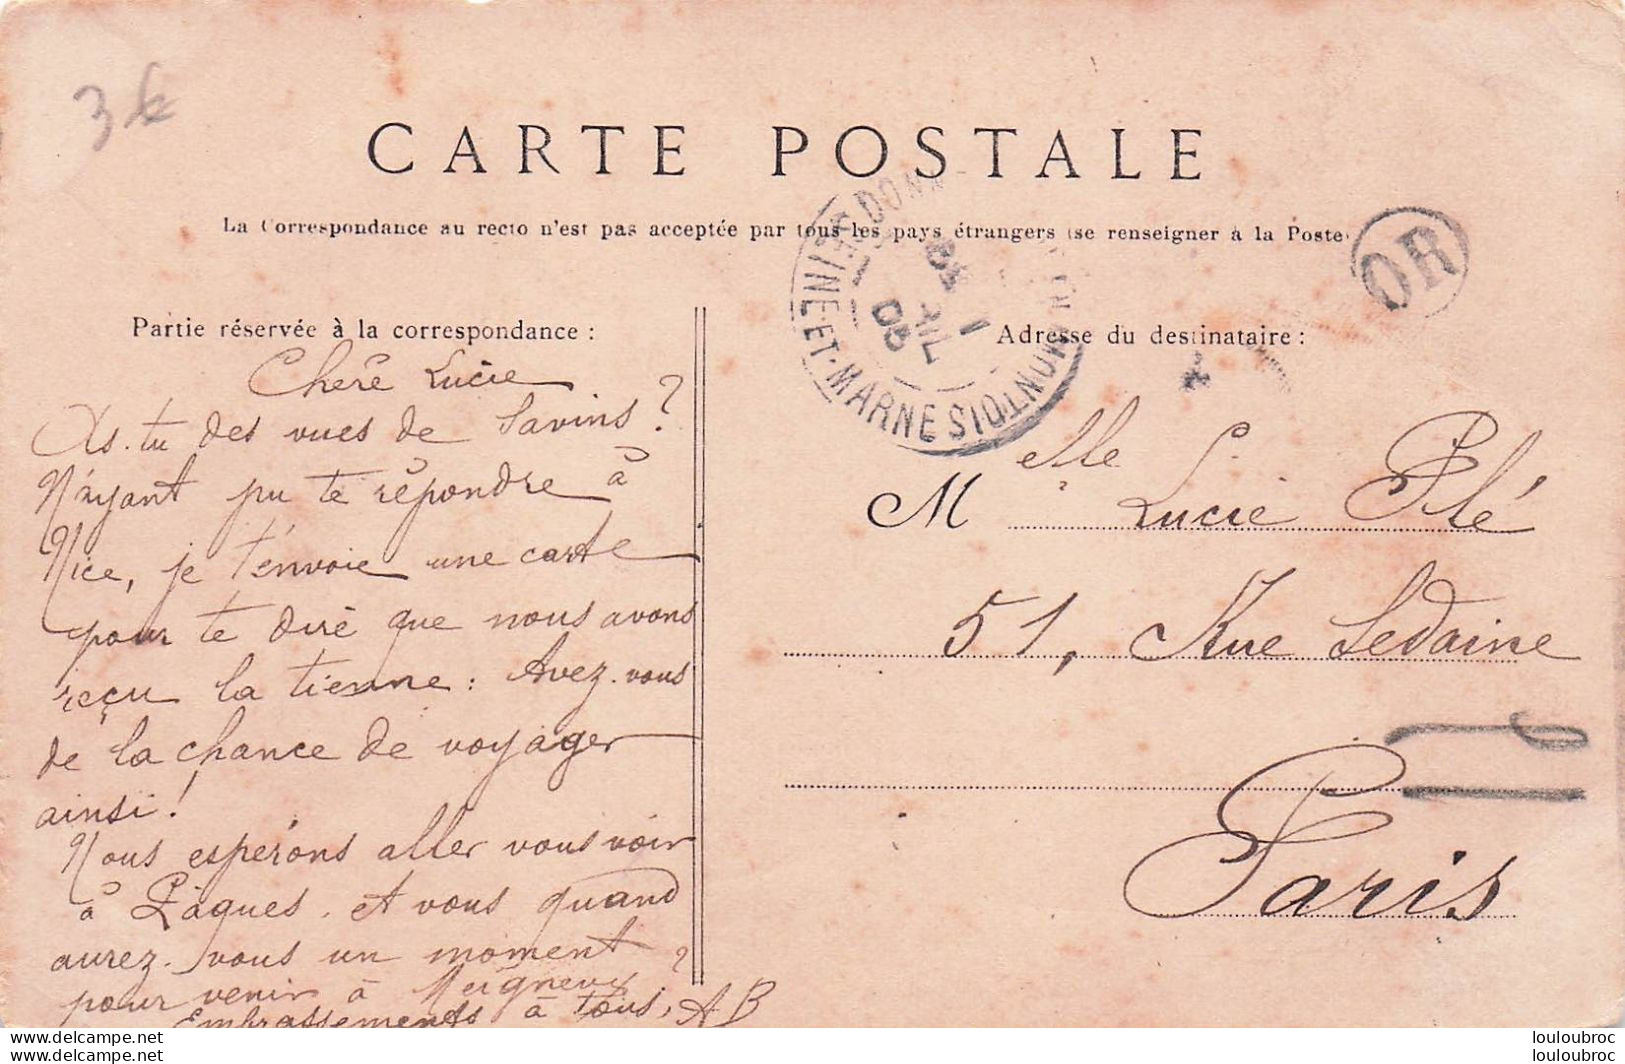 3€
CARTE POSTALE
La Correspondance au recto n'est pas acceptée par tous les pays étrangers (se renseigner à la Poste
OR
DONN
SEINE-ET-MARNE
MONTOIS
05
Partie réservée à la correspondance :
Chère Lucie
As-tu des vues de Savins ?
N'ayant pu te répondre à
Nice, je t'envoie une carte
pour te dire que nous avons
reçu la tienne : Avez-vous
de la chance de voyager
ainsi !
Nous espérons aller vous voir
à Pâques. et vous quand
aurez-vous un moment
pour venir à Meigneux ?
Embrassements à tous, AB
Adresse du destinataire :
Melle Lucie Plé
51, Rue Sedaine
Paris
louloubroc
louloubroc